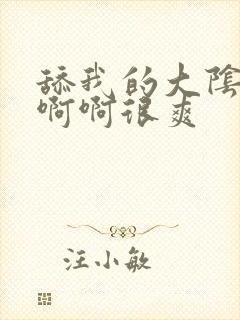 舔我的大阴
啊啊很爽
汪小敏